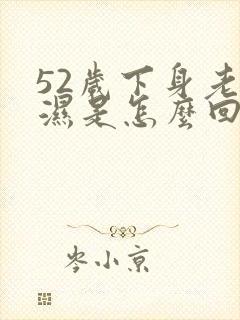 52歲下身老
濕是怎麼回
岑小京